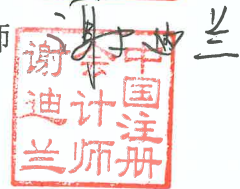 师 谢迪兰
中国注册
会计师
谢迪兰